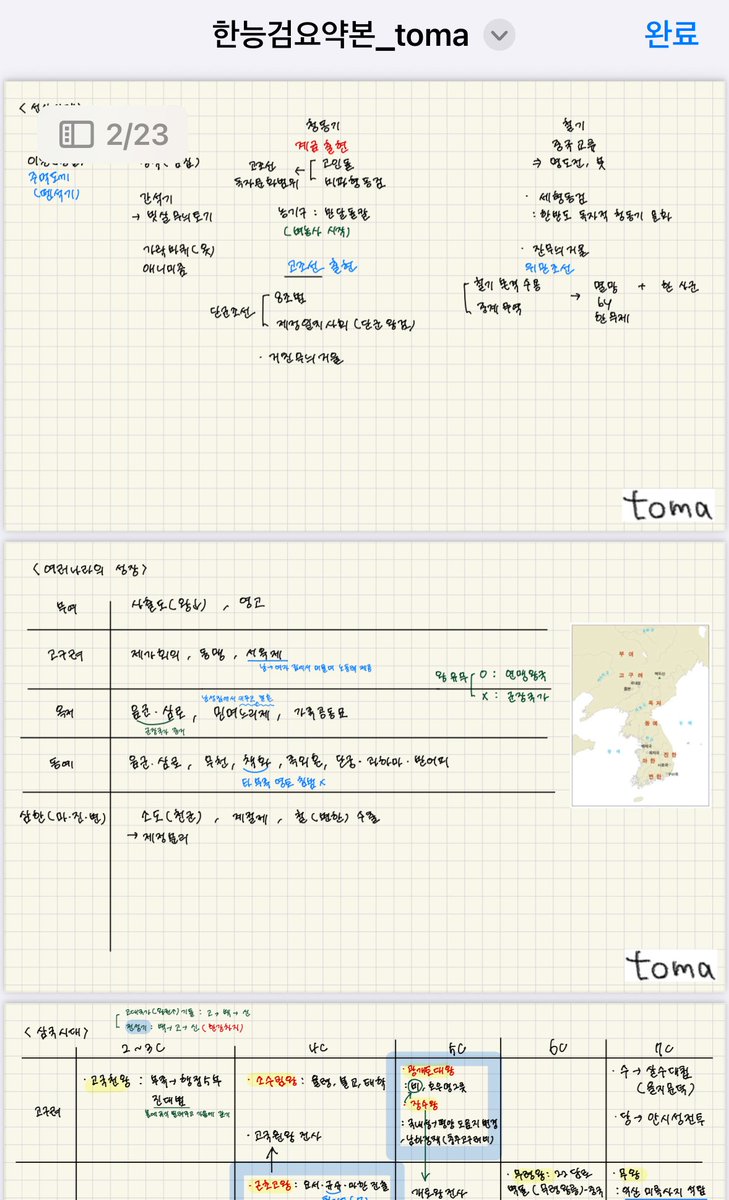 한능검요약본_toma
완료
2/23
주먹도끼
(뗀석기)
간석기
→ 빗살무늬토기
가락바퀴(옷)
애니미즘
청동기
계급 출현
고조선 ← 고인돌
독자문화범위 비파형동검
농기구 : 반달돌칼
(벼농사 시작)
고조선 출현
단군조선
8조법
제정일치사회 (단군왕검)
· 거친무늬거울
철기
중국 교류
⇒ 명도전, 붓
· 세형동검
: 한반도 독자적 청동기 문화
· 잔무늬거울
위만조선
철기 본격 수용
중계 무역
→ 멸망 + 한 사군
by
한무제
toma
<여러나라의 성장>
부여
사출도(왕↓) , 영고
고구려
제가회의 , 동맹 , 서옥제
왕 유무
O : 연맹왕국
X : 군장국가
옥저
읍군·삼로 , 민며느리제 , 가족공동묘
동예
읍군·삼로 , 무천 , 책화 , 족외혼 , 단궁·과하마·반어피
타 부족 영토 침범 X
삼한(마·진·변)
소도(천군) , 계절제 , 철(변한) 수출
→ 제정분리
부여
고구려
옥저
동예
마한
진한
변한
toma
<삼국시대>
전성기 : 백→고→신
2~3C
4C
5C
6C
7C
고구려
· 고국천왕 : 부족→행정5부
진대법
· 소수림왕 : 율령, 불교, 태학
· 고국원왕 전사
· 근초고왕 : 요서·규슈·마한 진출
· 광개토대왕
: 비, 호우명그릇
· 장수왕
: 국내성→평양 도읍지 변경
, 남하정책(충주고구려비)
개로왕 전사
· 무령왕 : 22담로
벽돌 (무령왕릉)
· 수 → 살수대첩
(을지문덕)
· 당 → 안시성전투
· 무왕
: 익산 미륵사지 석탑